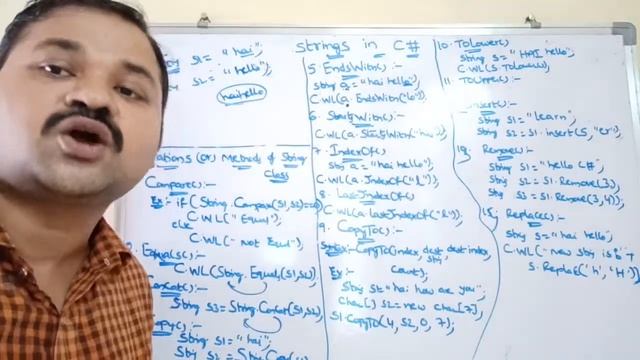 Strings in C#
S1 = "hai";
S2 = "hello";
haihello
(or) Methods of String
class
Compare():-
Ex:- if (String.Compare(S1,S2)==0)
C.WL("Equal");
else
C.WL("not Equal");
Equals():-
C.WL(String.Equals(S1,S2));
Concat():-
String S3=String.Concat(S1,S2);
Copy():-
String S1="hai";
String S2=
5. EndsWith():-
String a="hai hello";
C.WL(a.EndsWith("lo"));
6. StartsWith():-
C.WL(a.StartsWith("
7. IndexOf()
String a="hai hello";
C.WL(a.IndexOf("l"));
8. LastIndexOf()
C.WL(a.LastIndexOf("l"));
9. CopyTo():-
CopyTo(index, dest, dest index,
count);
Ex:-
String S1="hai how are you";
char[] S2=new char[7];
S1.CopyTo(4, S2, 0, 7);
10. ToLower()
String S="HAI hello";
C.WL(S.ToLower())
11. ToUpper():-
Insert():-
String S1="learn",
String S2=S1.insert(5,"er");
Remove():-
String S1="hello C#";
String S2=S1.Remove(3);
S3=S1.Remove(3,4);
Replace():-
String S="hai hello";
C.WL("new string is:" +
S.Replace('h','H'))